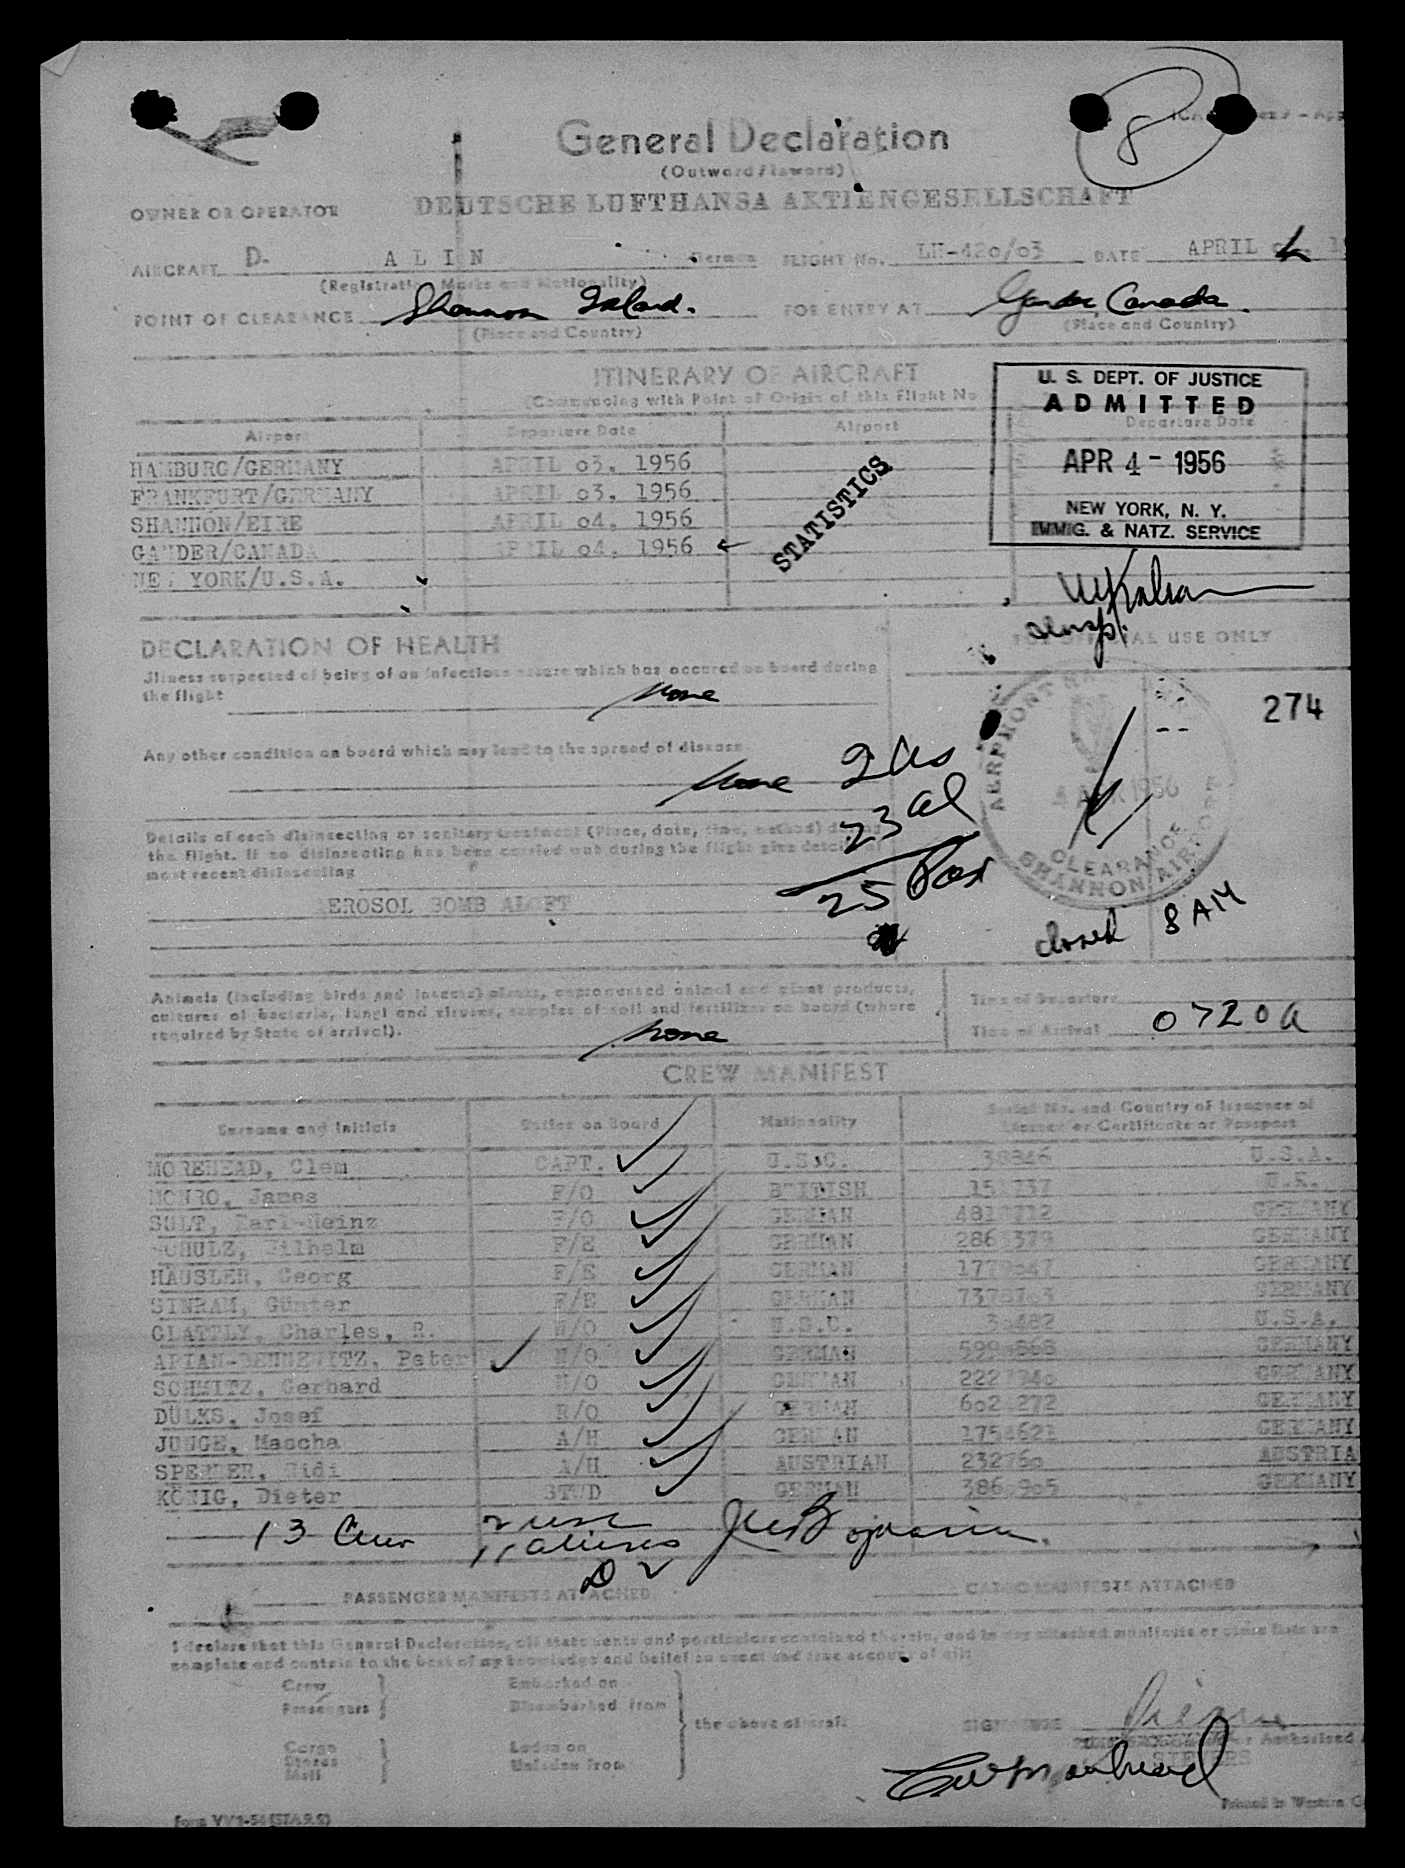 8
General Declaration
(Outward/Inward)
OWNER OR OPERATOR DEUTSCHE LUFTHANSA AKTIENGESELLSCHAFT
AIRCRAFT D- A L I N German FLIGHT No. LH-420/03 DATE APRIL
(Registration Marks and Nationality)
POINT OF CLEARANCE Shannon Ireland. FOR ENTRY AT Gander, Canada.
(Place and Country) (Place and Country)
ITINERARY OF AIRCRAFT
(Commencing with Point of Origin of this Flight No
U. S. DEPT. OF JUSTICE
ADMITTED
APR 4 - 1956
NEW YORK, N. Y.
IMMIG. & NATZ. SERVICE
Airport Departure Date Airport Departure Date
HAMBURG/GERMANY APRIL 03, 1956
FRANKFURT/GERMANY APRIL 03, 1956
SHANNON/EIRE APRIL 04, 1956
GANDER/CANADA APRIL 04, 1956
NEW YORK/U.S.A.
STATISTICS
DECLARATION OF HEALTH
FOR OFFICIAL USE ONLY
Illness suspected of being of an infectious nature which has occured on board during
the flight
none
274
Any other condition on board which may lead to the spread of disease
none
2 us
23 al
25 Pax
Details of each disinsecting or sanitary treatment (Place, date, time, method) during
the flight. If no disinsecting has been carried out during the flight give details of
most recent disinsecting
AEROSOL BOMB ALOFT
4 APR 1956
CLEARANCE
SHANNON AIRPORT
closed 8 AM
Animals (including birds and insects) plants, unprocessed animal and plant products,
cultures of bacteria, fungi and viruses, samples of soil and fertilizer on board (where
required by State of arrival).
none
Time of Departure
Time of Arrival 0720a
CREW MANIFEST
Surname and Initials Duties on Board Nationality Serial No. and Country of Issuance of
License or Certificate or Passport
MOREHEAD, Clem CAPT. U.S.C. 38846 U.S.A.
MONRO, James F/O BRITISH U.K.
SULT, Karl-Heinz F/O GERMAN GERMANY
SCHULZ, Wilhelm F/E GERMAN GERMANY
HÄUSLER, Georg F/E GERMAN GERMANY
SINRAM, Günter F/E GERMAN GERMANY
GLATTLY, Charles, R. N/O U.S.C. U.S.A.
APIAN-BENNEWITZ, Peter N/O GERMAN GERMANY
SCHMITZ, Gerhard N/O GERMAN GERMANY
DÜLKS, Josef R/O GERMAN GERMANY
JUNGE, Mascha A/H GERMAN 1754621 GERMANY
SPERNER, Didi A/H AUSTRIAN 232760 AUSTRIA
KÖNIG, Dieter STWD GERMAN GERMANY
13 Crew 2 usc
11 aliens
D 2
PASSENGER MANIFESTS ATTACHED CARGO MANIFESTS ATTACHED
I declare that this General Declaration, all statements and particulars contained therein, and in any attached manifests or crew lists are
complete and contain to the best of my knowledge and belief an exact and true account of all:
Crew Embarked on
Passengers Disembarked from
the above aircraft
Cargo Laden on
Stores Unladen from
Mail
SIGNATURE
or Authorised
SIEVERS
CWMorehead
Printed in Western